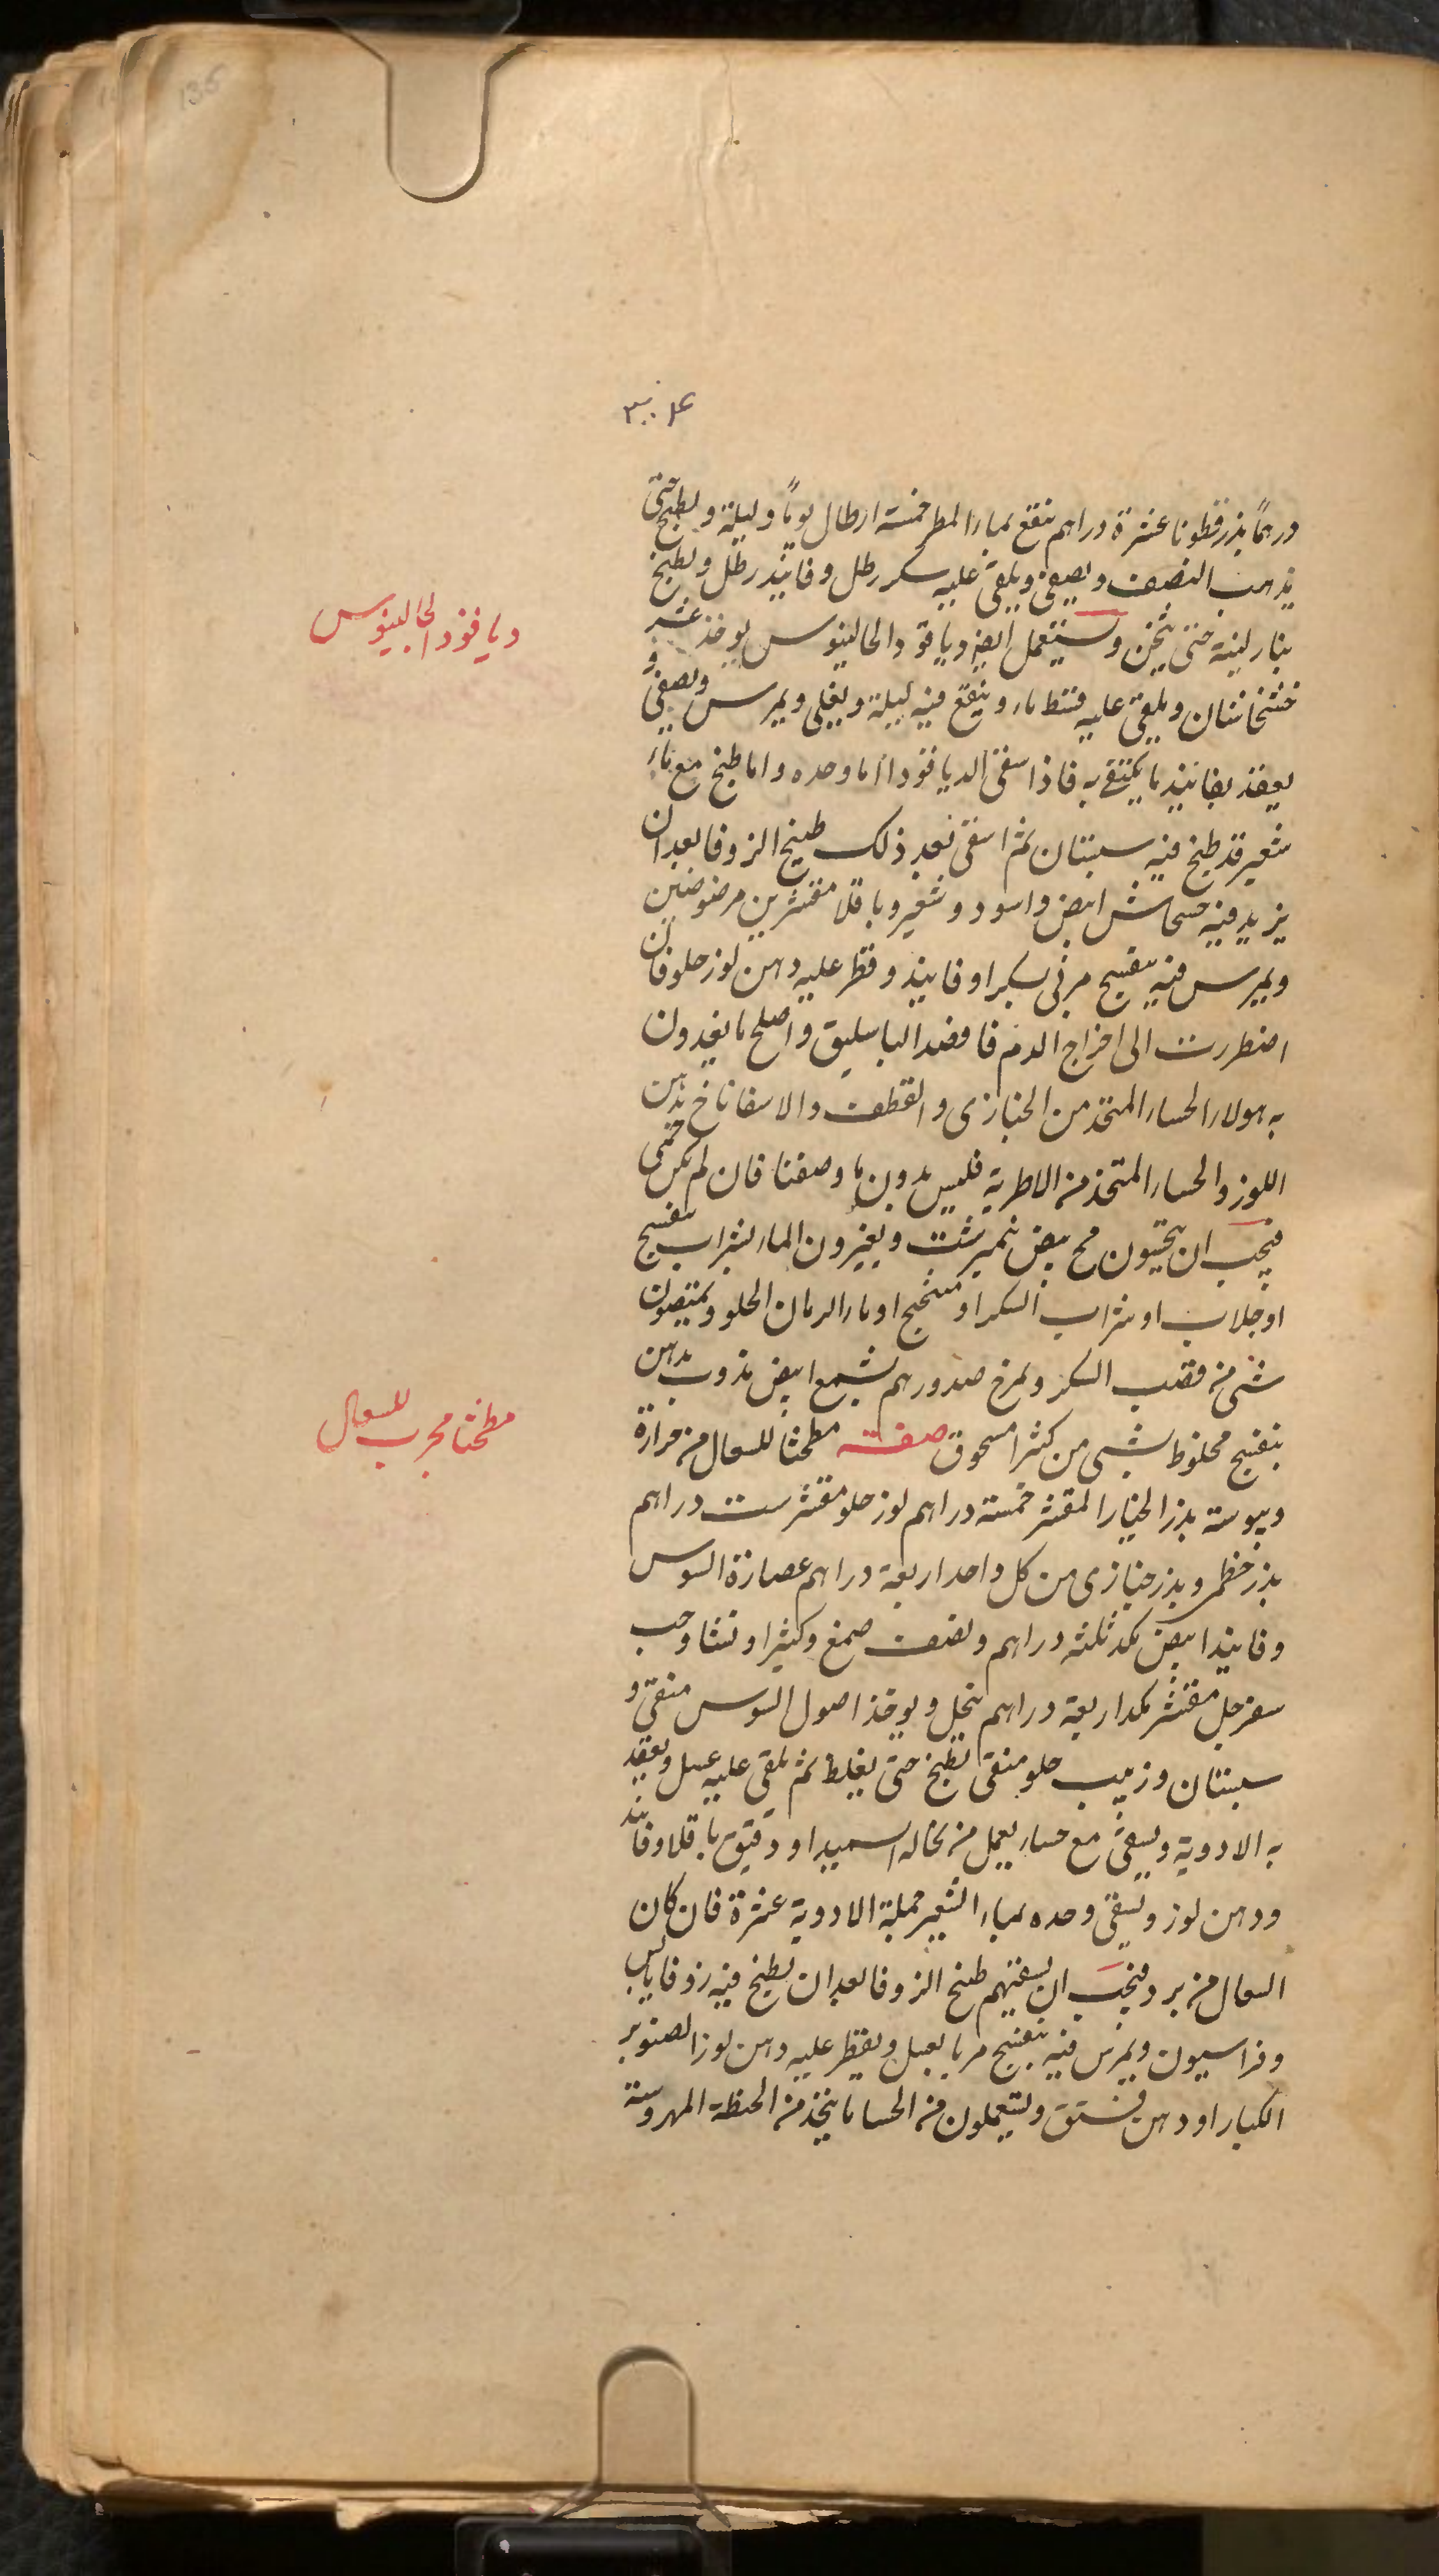 135
درهمًا بذر قطونا عشرة دراهم ينقع بماء المطر خمسة ارطال يومًا وليلة ويطبخ حتى
يذهب النصف ويصفى ويلقى عليه سكر رطل وفانيذ رطل ويطبخ
بنار لينة حتى يثخن ويستعمل ايضا دياقودا لجالينوس يوخذ عشر
خشخاشتان ويلقى عليه قسط ماء وينقع فيه ليلة ويغلى ويمرس ويصفى و
يعقد بفانيذ ما يكتفى به فاذا سقى الدياقودا اما وحده واما طبخ مع ماء
شعير قد طبخ فيه سبستان ثم اسقى بعد ذلك طبيخ الزوفا بعد ان
يزيد فيه خشخاش ابيض واسود وشعير وباقلا مقشرين مرضوضين
ويمرس فيه بنفسج مربى بسكر او فانيذ وقطر عليه دهن لوز حلو فان
اضطررت الى اخراج الدم فافصد الباسليق واصلح ما يغدون
به هولاء الحساء المتخذ من الخبازى والقطف والاسفاناخ بدهن
اللوز والحساء المتخذ من الاطرية فليس بدون ما وصفنا فان لم يكن حمى
فيجب ان يتحسون مح بيض نيمبرشت ويغيرون الماء بشراب بنفسج
او جلاب او شراب السكر او ميبختج او ماء الرمان الحلو ويمتصون
شى من قصب السكر ويمرخ صدورهم بشمع ابيض مذوب بدهن
بنفسج مخلوط بشى من كثيرا مسحوق صفة مطحثا للسعال من حرارة
ويبوسة بذر الخيار المقشر خمسة دراهم لوز حلو مقشر ست دراهم
بذر خطمى وبذر خبازى من كل واحد اربعة دراهم عصارة السوس
وفانيذ ابيض بكد ثلثه دراهم ونصف صمغ وكثيرا ونشا وحب
سفرجل مقشر بكد اربعة دراهم ينخل ويوخذ اصول السوس منقى و
سبستان وزبيب حلو منقى يطبخ حتى يغلظ ثم يلقى عليه عسل ويعقد
به الادوية ويسقى مع حساء يعمل من نخاله السميد او دقيق باقلا وفانيذ
ودهن لوز ويسقى وحده بماء الشعير جملة الادوية عشرة فان كان
السعال من برد فيجب ان يسقيهم طبيخ الزوفا بعد ان يطبخ فيه زوفا يابس
وفراسيون ويمرس فيه بنفسج مربا بعسل ويقطر عليه دهن لوز الصنوبر
الكبار او دهن فستق ويستعملون من الحسا ما يتخذ من الحنطة المهروسة
دياقودا لجالينوس
مطحثا مجرب للسعال